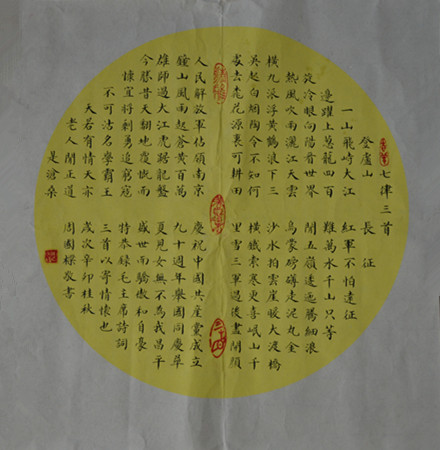 七律三首
登廬山
一山飛峙大江
邊躍上蔥蘢四百
旋冷眼向陽看世界
熱風吹雨灑江天雲
橫九派浮黃鶴浪下三
吳起白烟陶令不知何
處去桃花源裏可耕田
人民解放軍佔領南京
鐘山風雨起蒼黃百萬
雄師過大江虎踞龍盤
今勝昔天翻地覆慨而
慷宜將剩勇追窮寇
不可沽名學霸王
天若有情天亦
老人間正道
是滄桑
長征
紅軍不怕遠征
難萬水千山只等
閒五嶺逶迤騰細浪
烏蒙磅礴走泥丸金
沙水拍雲崖暖大渡橋
橫鐵索寒更喜岷山千
里雪三軍過後盡開顏
慶祝中國共產黨成立
九十週年舉國同慶華
夏兒女無不為我昌平
盛世而驕傲和自豪
特恭録毛主席詩詞
三首以寄情懷也
歲次辛卯桂秋
周國樑敬書